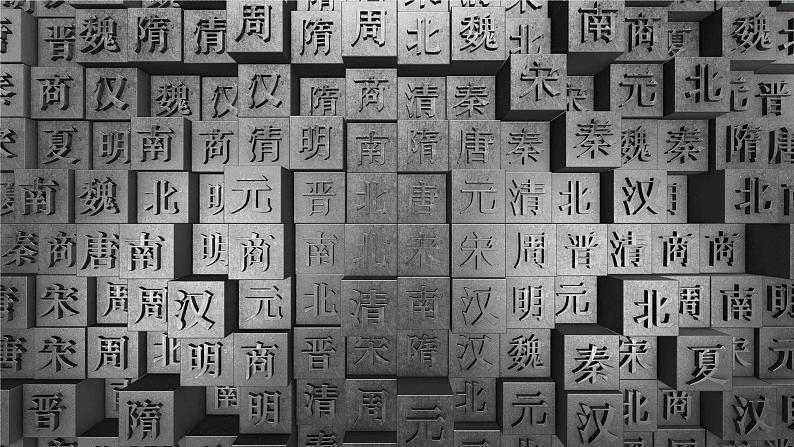 晋 魏 隋 清 周 隋 周 北 魏 南 商 夏 魏
商 汉 魏 汉 汉 隋 商 清 秦 宋 元 北 晋
夏 明 南 商 清 明 南 隋 唐 秦 秦 魏 秦 隋 唐
南 魏 北 明 元 晋 北 唐 元 清 北 汉 北
秦 商 唐 南 明 商 南 北 宋 宋 周 晋 清 商 商
宋 周 周 汉 元 北 清 南 汉 明 元 北 周 南 明
唐 宋 周 明 商 晋 宋 隋 汉 魏 秦 宋 夏
晋 隋 明 清 周 元 元 汉